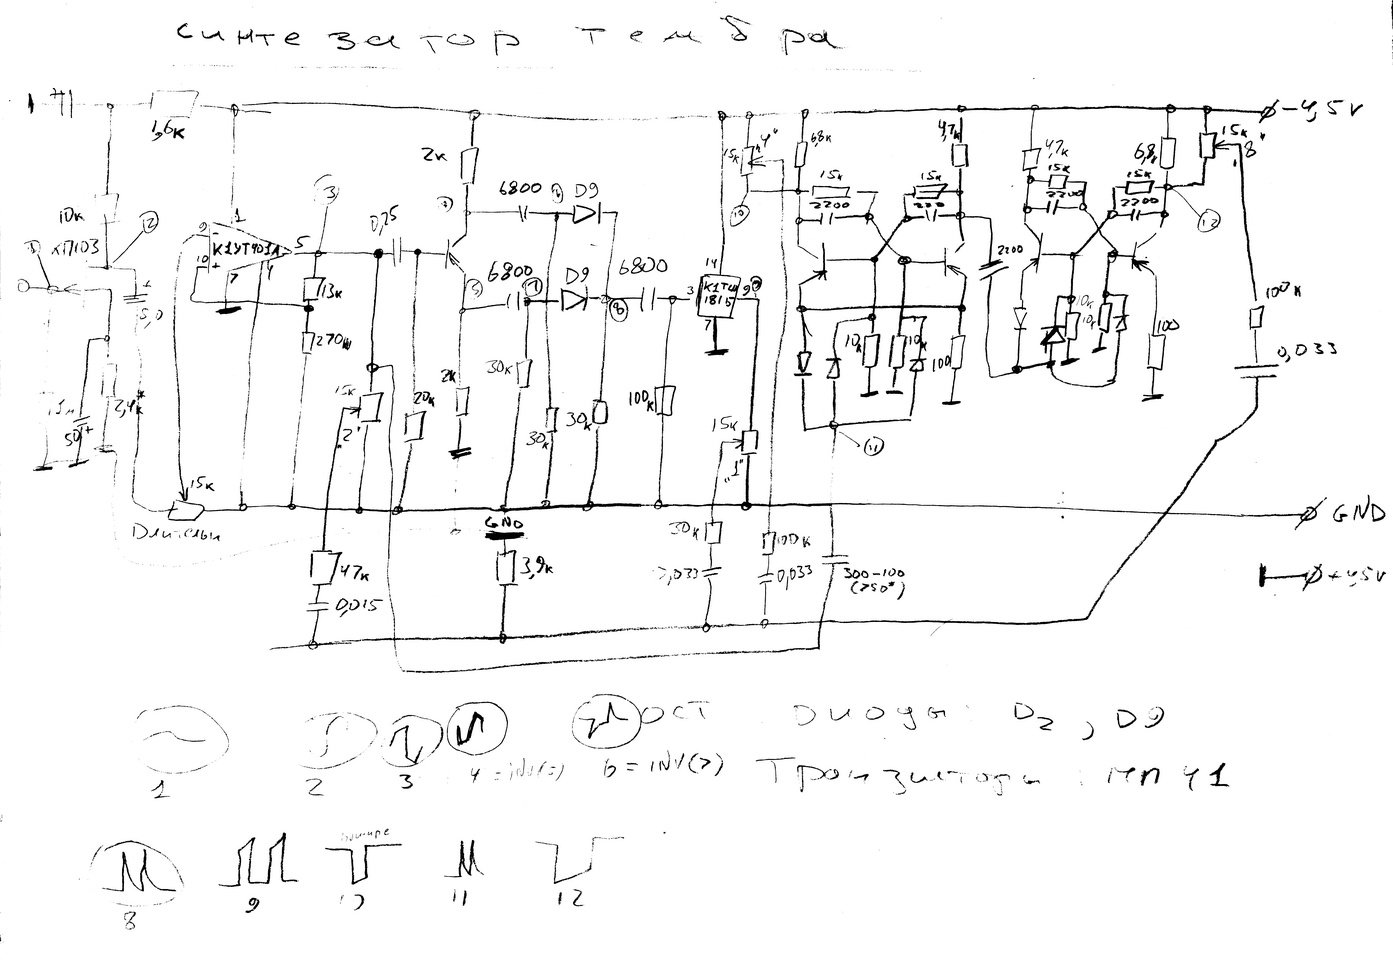 синтезатор тембра
-4,5V
1,6к
2к
4,7к
4,7к
6,8к
15к
"8"
6,8к
15к
"4"
15к
15к
15к
15к
2200
220
2200
2200
2200
10к
2
1
КП103
3
9
1
К1УТ401А
5
10
7
4
0,25
6800
Д9
6800
Д9
6800
5,0
13к
270к
14
3
К1ТШ
1815
9
7
8
10
12
11
10к
10к
10к
10к
100
100
100к
0,033
2,4к*
50
+
15к
"2"
20к
2к
30к
30к
30к
100к
15к
"1"
15к
GND
GND
+4,5V
47к
0,015
3,9к
30к
0,033
100к
0,033
300-100
(250*)
ОСТ
Диоды: D2, D9
1
2
3
4 = INV(3)
6 = INV(7)
Транзисторы: МП41
8
9
10
11
12